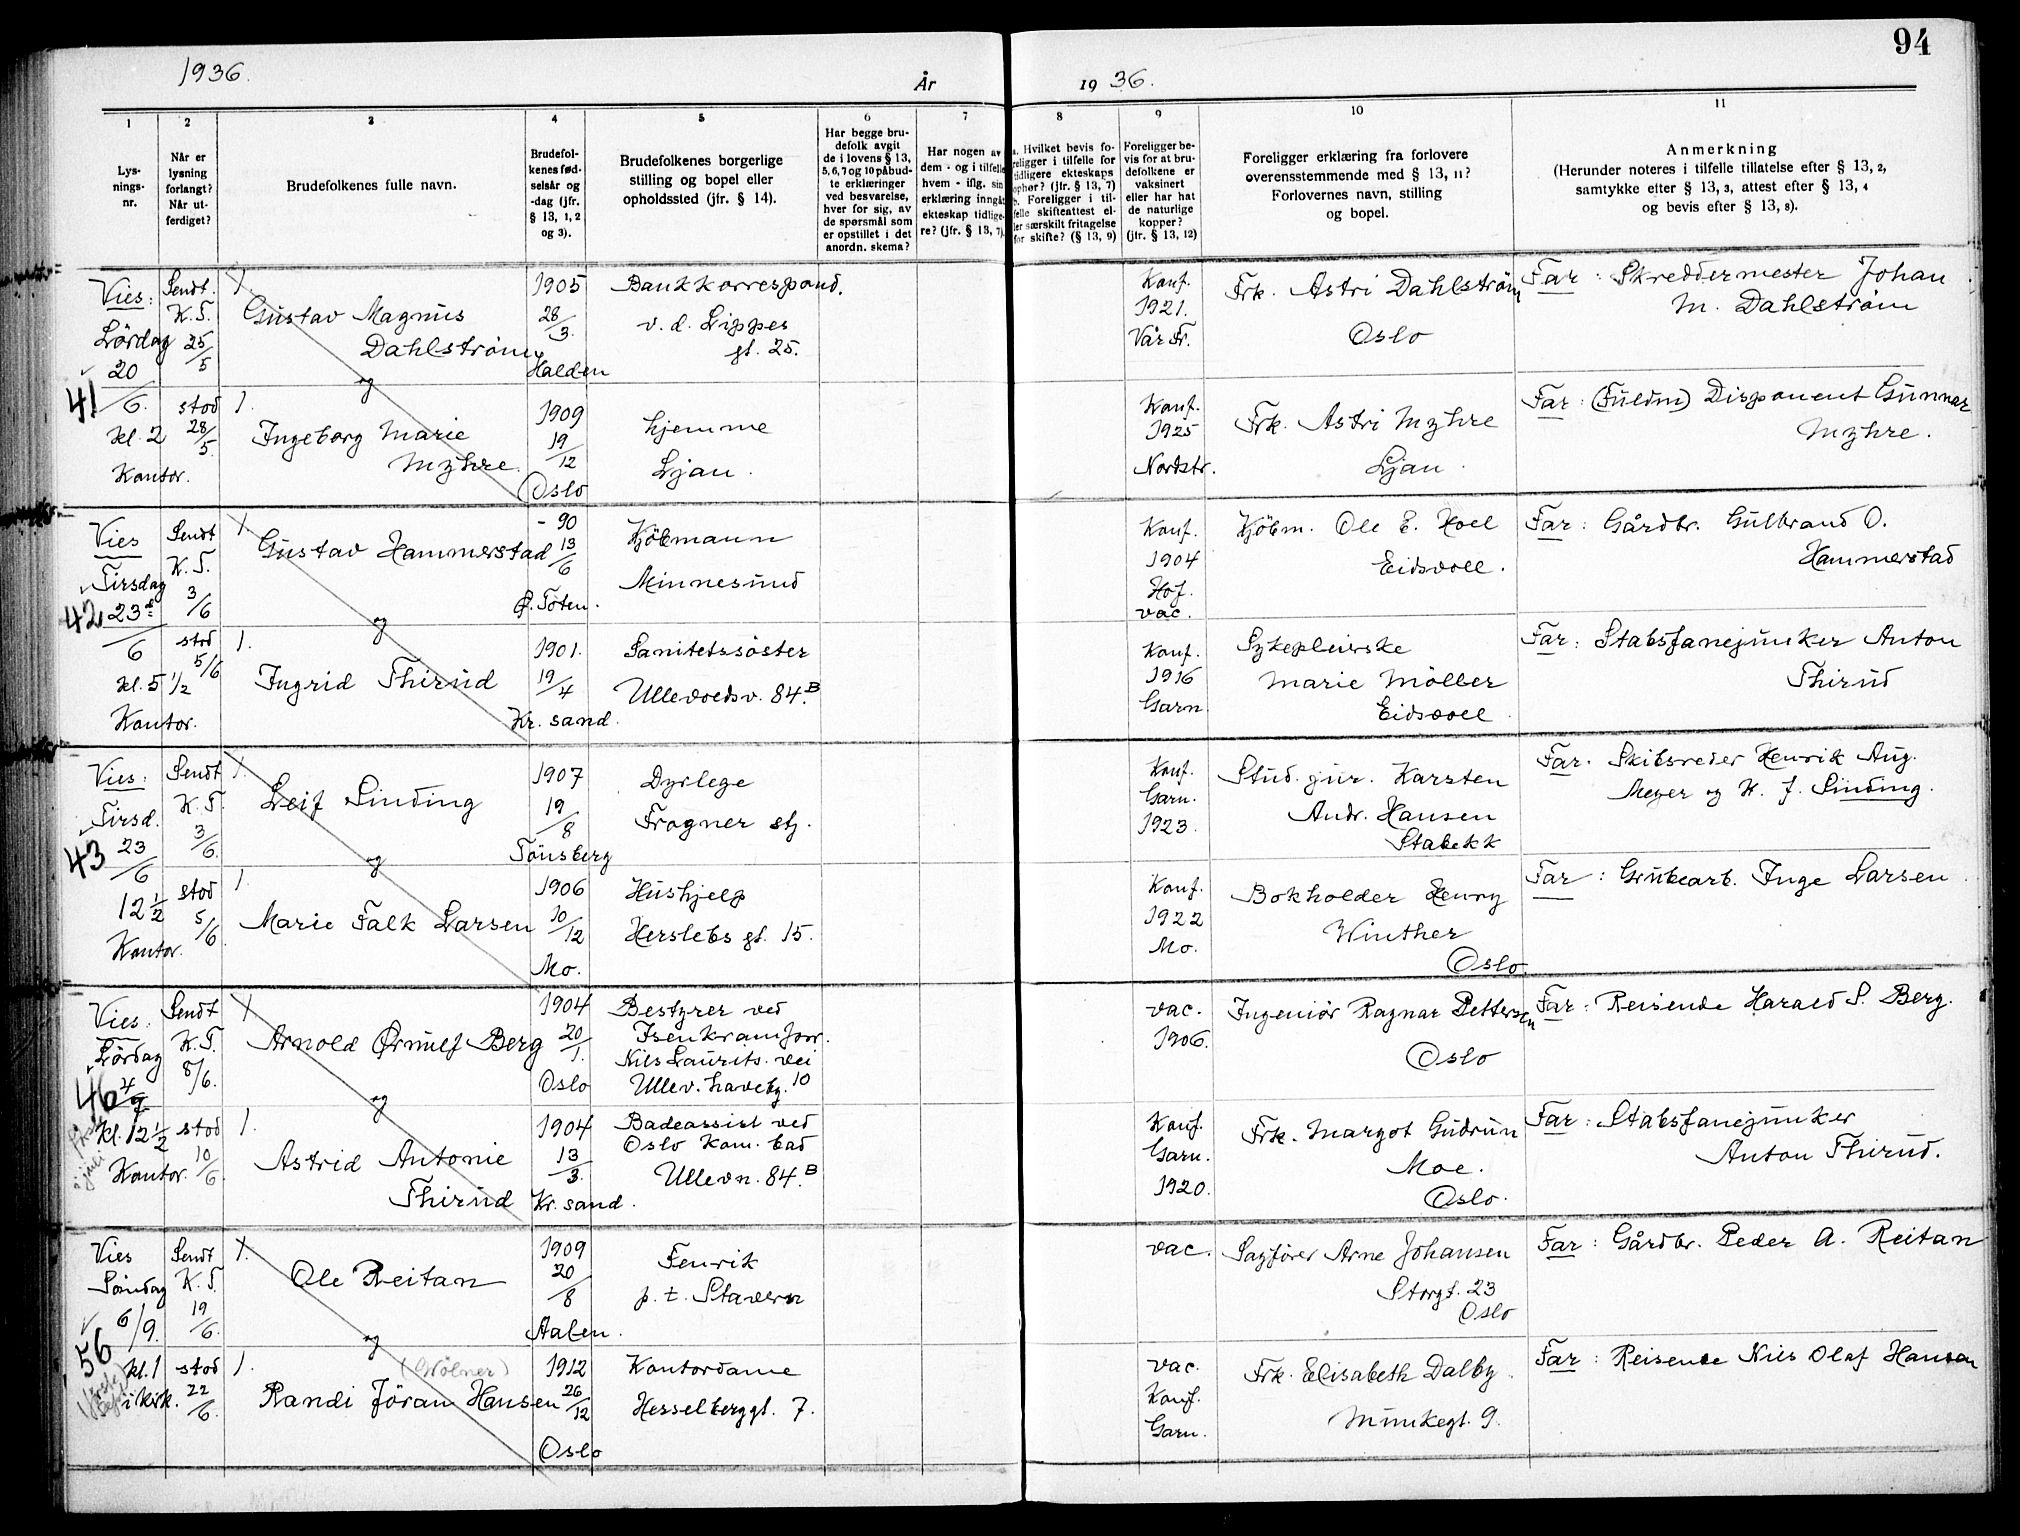 94
1936.
År
19 36.
1
2
3
4
5
6
7
8
9
10
11
Lys-
nings-
nr.
Når er
lysning
forlangt?
Når ut-
ferdiget?
Brudefolkenes fulle navn.
Brudefol-
kenes fød-
selsår og
-dag (jfr.
§ 13, 1, 2
og 3).
Brudefolkenes borgerlige
stilling og bopel eller
opholdssted (jfr. § 14).
Har begge bru-
defolk avgit
de i lovens § 13,
5, 6, 7 og 10 påbud-
te erklæringer
ved besvarelse,
hver for sig, av
de spørsmål som
er opstillet i det
anordn. skema?
Har nogen av
dem - og i tilfelle
hvem - iflg. sin
erklæring inngåt
ekteskap tidlige-
re? (jfr. § 13, 7).
a. Hvilket bevis fo-
religger i tilfelle for
tidligere ekteskaps
ophør? (jfr. § 13, 7)
b. Foreligger i til-
felle skifteattest el-
ler særskilt fritagelse
for skifte? (§ 13, 9)
Foreligger be-
vis for at bru-
defolkene er
vaksinert
eller har hat
de naturlige
kopper?
(jfr. § 13, 12)
Foreligger erklæring fra forlovere
overensstemmende med § 13, 11?
Forlovernes navn, stilling
og bopel.
Anmerkning
(Herunder noteres i tilfelle tillatelse efter § 13, 2,
samtykke efter § 13, 3, attest efter § 13, 4
og bevis efter § 13, 8).
41
Vies:
Lördag
20
/6.
kl. 2
Kontor.
Sendt.
K.T.
25/5
stod
28/5.
1.
Gustav Magnus
Dahlström
og
1905
28/3.
Halden
Bankkorrespond.
v. d. Lippes
gt. 25.
Konf.
1921.
Vår Fr.
Frk. Astri Dahlström
Oslo
Far: Skreddermester Johan
M. Dahlström
1.
Ingeborg Marie
Myhre.
1909
19/12
Oslo
hjemme
Ljan.
Konf.
1925
Nordstr.
Frk. Astri Myhre
Ljan.
Far: (Fuldm) Disponent Gunnar
Myhre.
42
Vies
Tirsdag
23d
/6
kl. 5 1/2
Kontor.
Sendt
K.T.
3/6
stod
5/6
1.
Gustav Hammerstad
og
- 90
13/6
Ø. Toten.
Kjöbmann
Minnesund
Konf.
1904
Hof.
vac.
Kjöbm. Ole E. Hoel
Eidsvoll.
Far: Gårdbr. Gulbrand O.
Hammerstad
1.
Ingrid Thirud
1901.
19/4
Kr. sand.
Sanitetssöster
Ullevoldsv. 84.B
Konf.
1916
Garn
Sykepleierske
Marie Möller
Eidsvoll
Far: Stabsfanejunker Anton
Thirud
43
Vies:
Tirsd.
23
/6
12 1/2
Kontor.
Sendt
K.T.
3/6.
stod
5/6.
1.
Leif Sinding
og
1907
19/8
Tönsberg
Dyrlege
Frogner stj.
Konf.
Garn.
1923.
Stud. jur. Karsten
Andr. Hansen
Stabekk
Far. Skibsreder Henrik Aug.
Meyer og H. J. Sinding.
1.
Marie Falk Larsen
1906
10/12
Mo.
Hushjelp
Herslebs gt. 15.
Konf.
1922
Mo.
Bokholder Henry
Winther
Oslo.
Far: Grubearb. Inge Larsen.
46
Vies.
Lördag
4/7
kl. 12 1/2
Kontor.
Sendt
K.T.
8/6.
stod
10/6.
1
Arnold Ørnulf Berg
og
1904
20/1.
Oslo
Bestyrer ved
Isenkramforr.
Nils Laurits. vei
Ullev. haveby. 10
vac.
1906.
Ingeniör Ragnar Pettersen
Oslo
Far: Reisende Harald S. Berg.
1.
Astrid Antonie
Thirud
1904
13/3.
Kr. sand.
Badeassist ved
Oslo Kom. bad
Ullevn. 84.B
Konf.
Garn.
1920.
Frk. Margot Gudrun
Moe.
Oslo.
Far: Stabsfanejunker
Anton Thirud.
56
Vies
Söndag
6/9.
kl. 1
i kirk.
Sendt
K.T.
19/6.
stod
22/6.
1.
Ole Reitan
og
1909
20/8
Aalen.
Fenrik
p. t. Stavern
vac.
Sagförer Arne Johansen
Storgt. 23
Oslo
Far: Gårdbr. Peder A. Reitan
1.
(Grölner)
Randi Jöran Hansen
1912
26/12
Oslo
Kontordame
Hesselberggt. 7.
vac.
Konf.
Garn.
Frk. Elisabeth Dalby.
Munkegt. 9.
Far: Reisende Nils Olaf Hansen